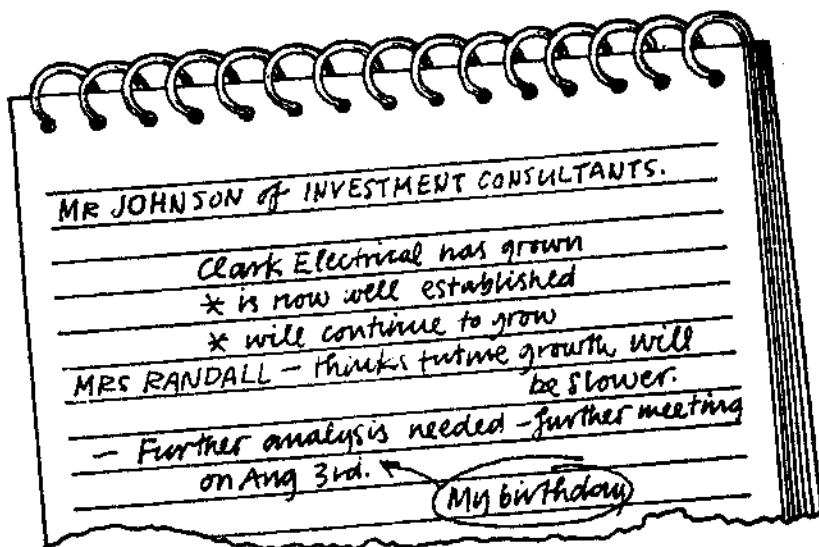 MR JOHNSON of INVESTMENT CONSULTANTS.
Clark Electrical has grown
* is now well established
* will continue to grow
MRS RANDALL - thinks future growth will
be slower.
- Further analysis needed - further meeting
on Aug 3rd.
My birthday